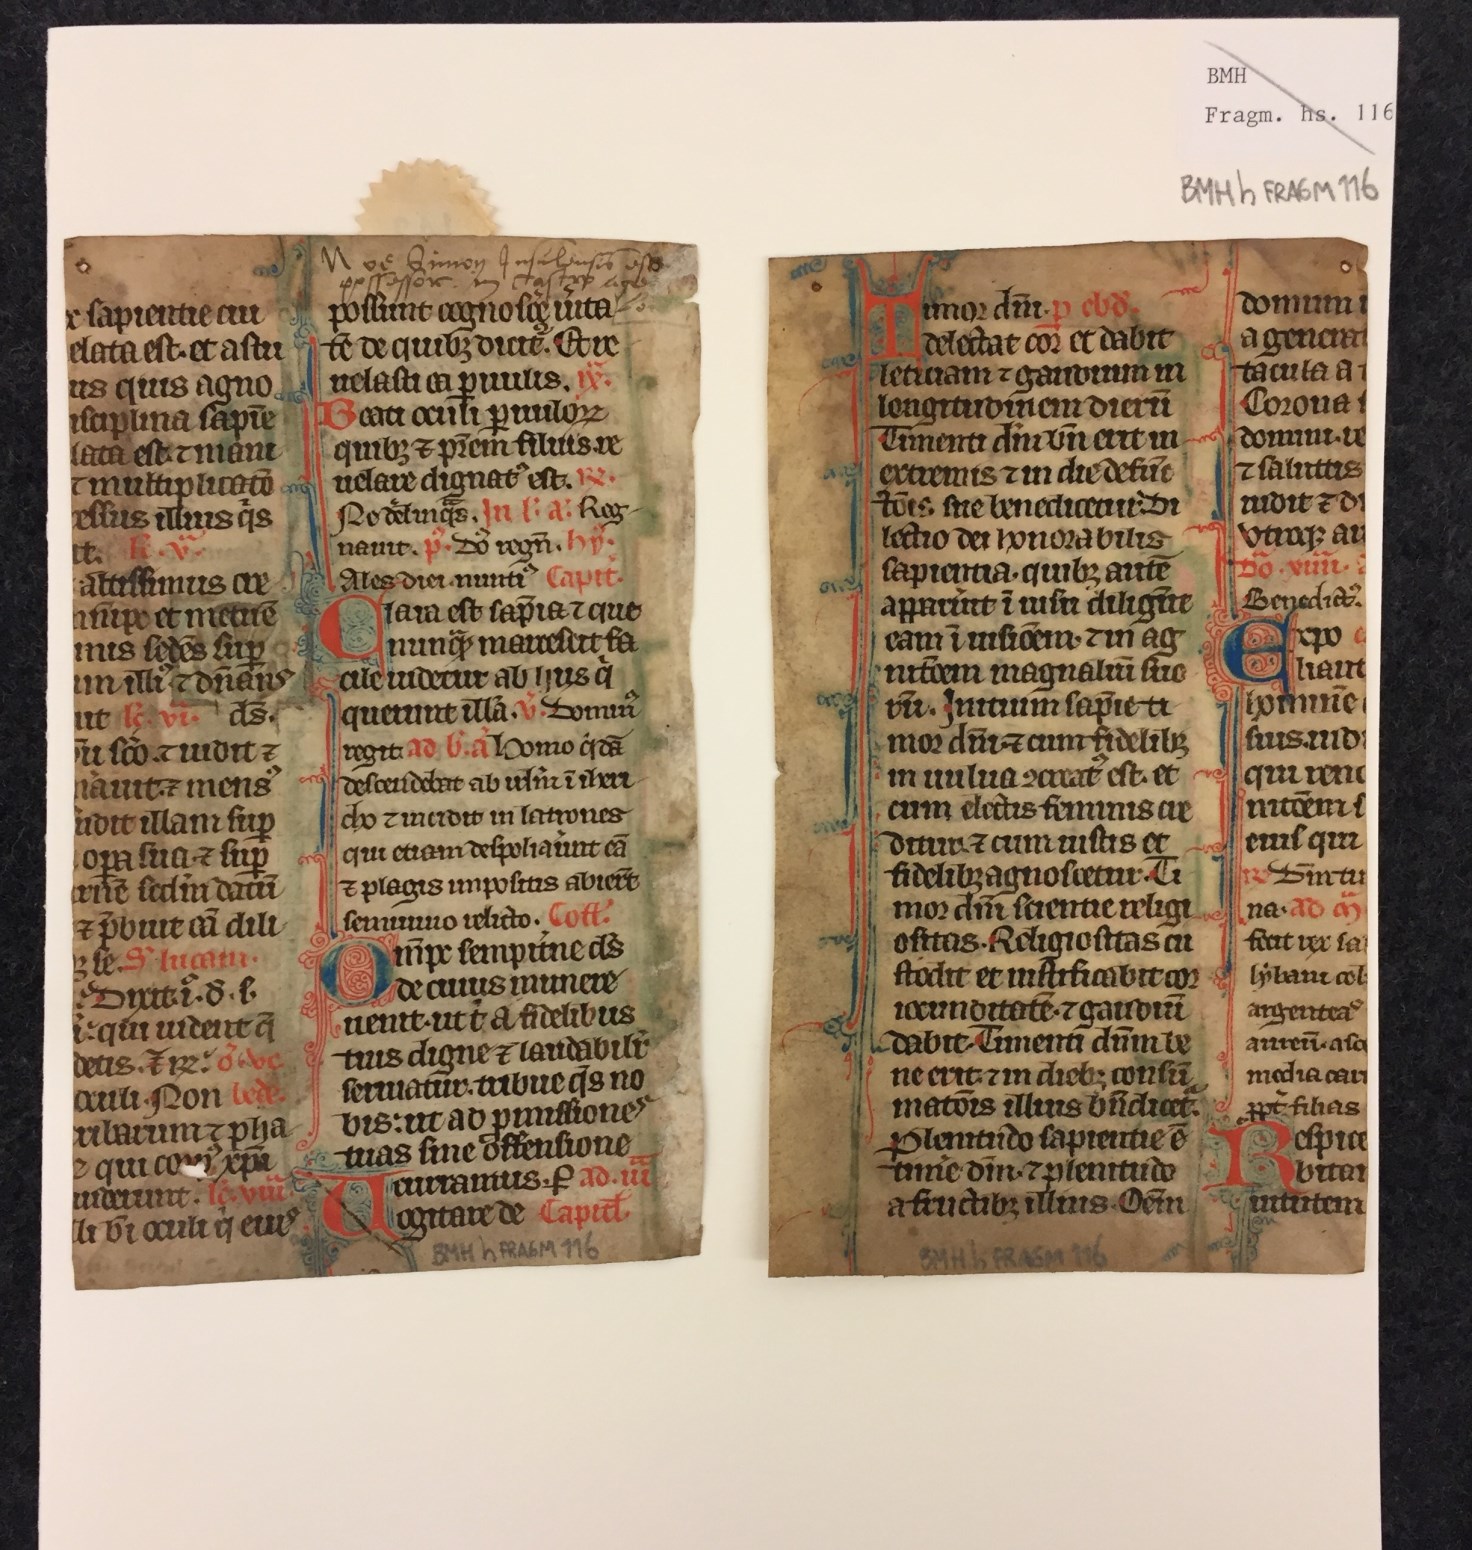 BMH
Fragm. hs. 116
BMH h FRAGM 116
Simon
possessor
sapientie cui
elata est. et astu
us quis agno
sciplina sapīe
lata est. ⁊ mani
⁊ multiplicatō
essus illius q̄s
altissimus cre
nimpx et metuē
sedēs sup
illi ⁊ dn̄ans
ut lc̄. vi. ds̄.
sc̄o. ⁊ uidit ⁊
mens
udit illam sup
opa sua. ⁊ sup
carnē sc̄dm datū
⁊ p̄buit eā dili
se. S. lucam.
Dixit i. d. s.
qui uident q̄
oculi. Non bede.
scribarum ⁊ pha
qui xpī
uiderunt. lc̄. viii.
li bī oculi q̄ eius
possunt cognosce᷑ iuxta
te de quibꝫ dicit. Et re
uelasti ea paruulis. ix.
Beati oculi paruuloꝝ
quibꝫ ⁊ pr̄em filius re
uelare dignatꝰ est. R.
Ne delinq̄s. In l. a. Reg
nauit. p̄. Dō regn̄. hy.
Ales diei nuntiꝰ Capit.
Clara est sap̄ia ⁊ que
nunq̄ marcescit fa
cile uidetur ab hijs q̄
querunt illā. v. Dominꝰ
regit. ad b. a. Homo q̄dā
descendebat ab irl̄m ī iheri
cho ⁊ incidit in latrones
qui etiam despoliauerūt eū
⁊ plagis impositis abierūt
semiuiuo relicto. Coll̄.
Om̄ps sempit̄ne ds̄
de cuius munere
uenit. ut t̄ a fidelibus
tuis digne ⁊ laudabilit̄
seruiatur. tribue q̄s no
bis: ut ad pmissiones
tuas sine offensione
curramus. P. ad. iii
Cogitare de Capitl̄.
Timor dn̄i. p ebd̄.
delectat cor et dabit
leticiam ⁊ gaudium in
longitudinem dierū
Timenti dn̄m bn̄ erit in
extremis ⁊ in die defunc
tōis sue benedicetur. Di
lectio dei honorabilis
sapientia. quibꝫ autē
apparuerit ī uisu diligūt
eam ī uisiōem. ⁊ in ag
nitōem magnaliū suo
rū. Initium sapīe ti
mor dn̄i. ⁊ cum fidelibꝫ
in uulua ↄcreatꝰ est. et
cum electis feminis cre
ditur. ⁊ cum iustis et
fidelibꝫ agnoscetur. Ti
mor dn̄i scientie religi
ositas. Religiositas cu
stodit et iustificabit cor
iocunditatē ⁊ gaudiū
dabit. Timenti dn̄m be
ne erit. ⁊ in diebꝫ consū
matōis illius bn̄dicet᷑.
Plenitudo sapientie ē
timere dm̄. ⁊ plenitudo
a fructibꝫ illius. Oēm
domum
a generat
tacula a
Corona
domini. re
⁊ salutis
uidit ⁊ di
vtraqꝫ au
Dō. xiiii.
Benedictꝰ.
Expo
liant
homine
suis. uidi
qui reno
nitōem
eius qui
R. Diuitu
na. ad m̄
fecit rex sa
lybani col
argenteas
aureū. asce
media cari
ppt̄ filias
Respice
bitan
uirtutem
BMH h FRAGM 116
BMH h FRAGM 116